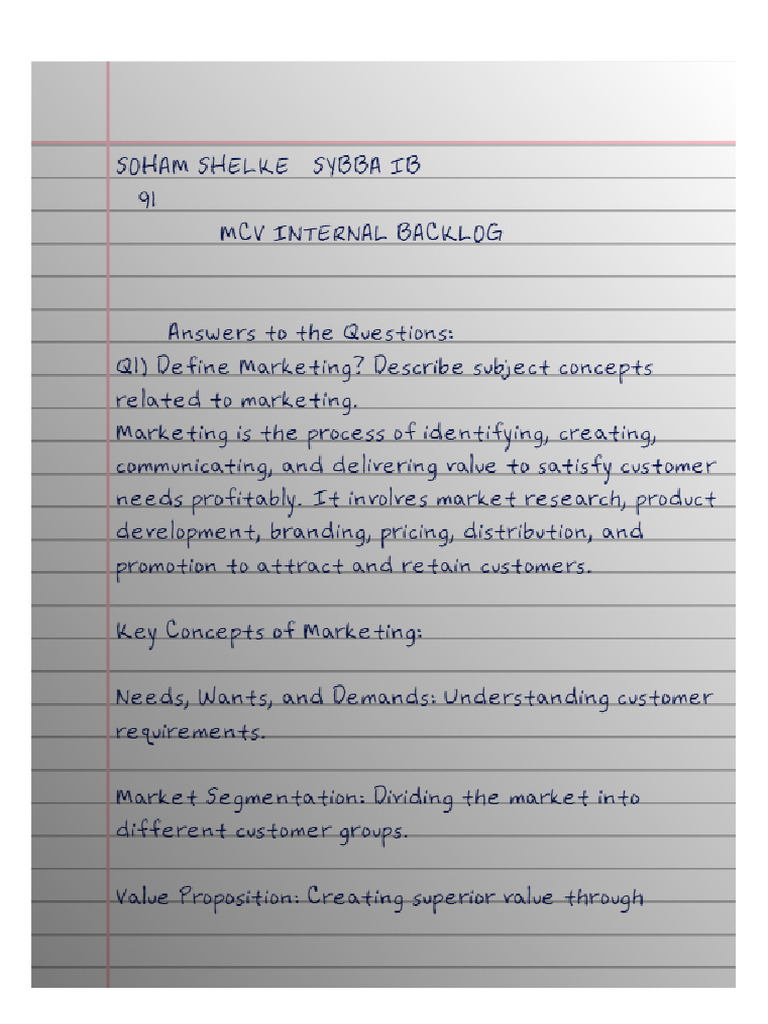 SOHAM SHELKE SYBBA IB
91
MCV INTERNAL BACKLOG
Answers to the Questions:
Q1) Define Marketing? Describe subject concepts
related to marketing.
Marketing is the process of identifying, creating,
communicating, and delivering value to satisfy customer
needs profitably. It involves market research, product
development, branding, pricing, distribution, and
promotion to attract and retain customers.
Key Concepts of Marketing:
Needs, Wants, and Demands: Understanding customer
requirements.
Market Segmentation: Dividing the market into
different customer groups.
Value Proposition: Creating superior value through